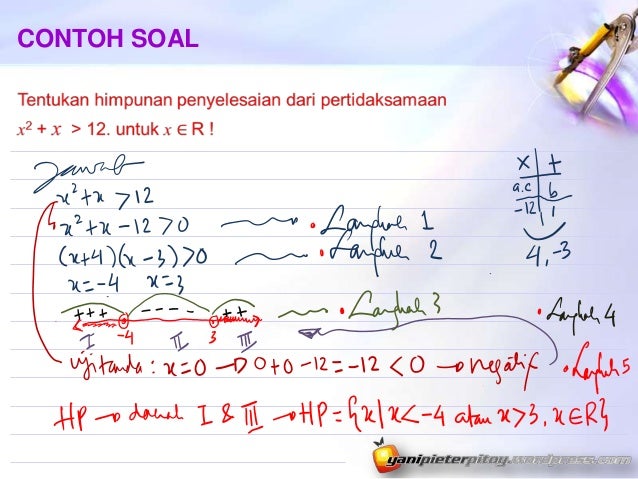 CONTOH SOAL
Tentukan himpunan penyelesaian dari pertidaksamaan
x² + x > 12. untuk x ∈ R !
Jawab
x²+x >12
x²+x -12 >0 • Langkah 1
(x+4)(x-3)>0 • Langkah 2
x=-4 x=3
x +
a.c b
-12 1
4,-3
+++ ---- ++ • Langkah 3 • Langkah 4
-4 3
I II III
ujitanda : x=0 → 0+0-12=-12 < 0 → negatif • Langkah 5
HP → daerah I & III → HP = {x|x<-4 atau x>3, x∈R}
yanipieterpitoy.wordpress.com